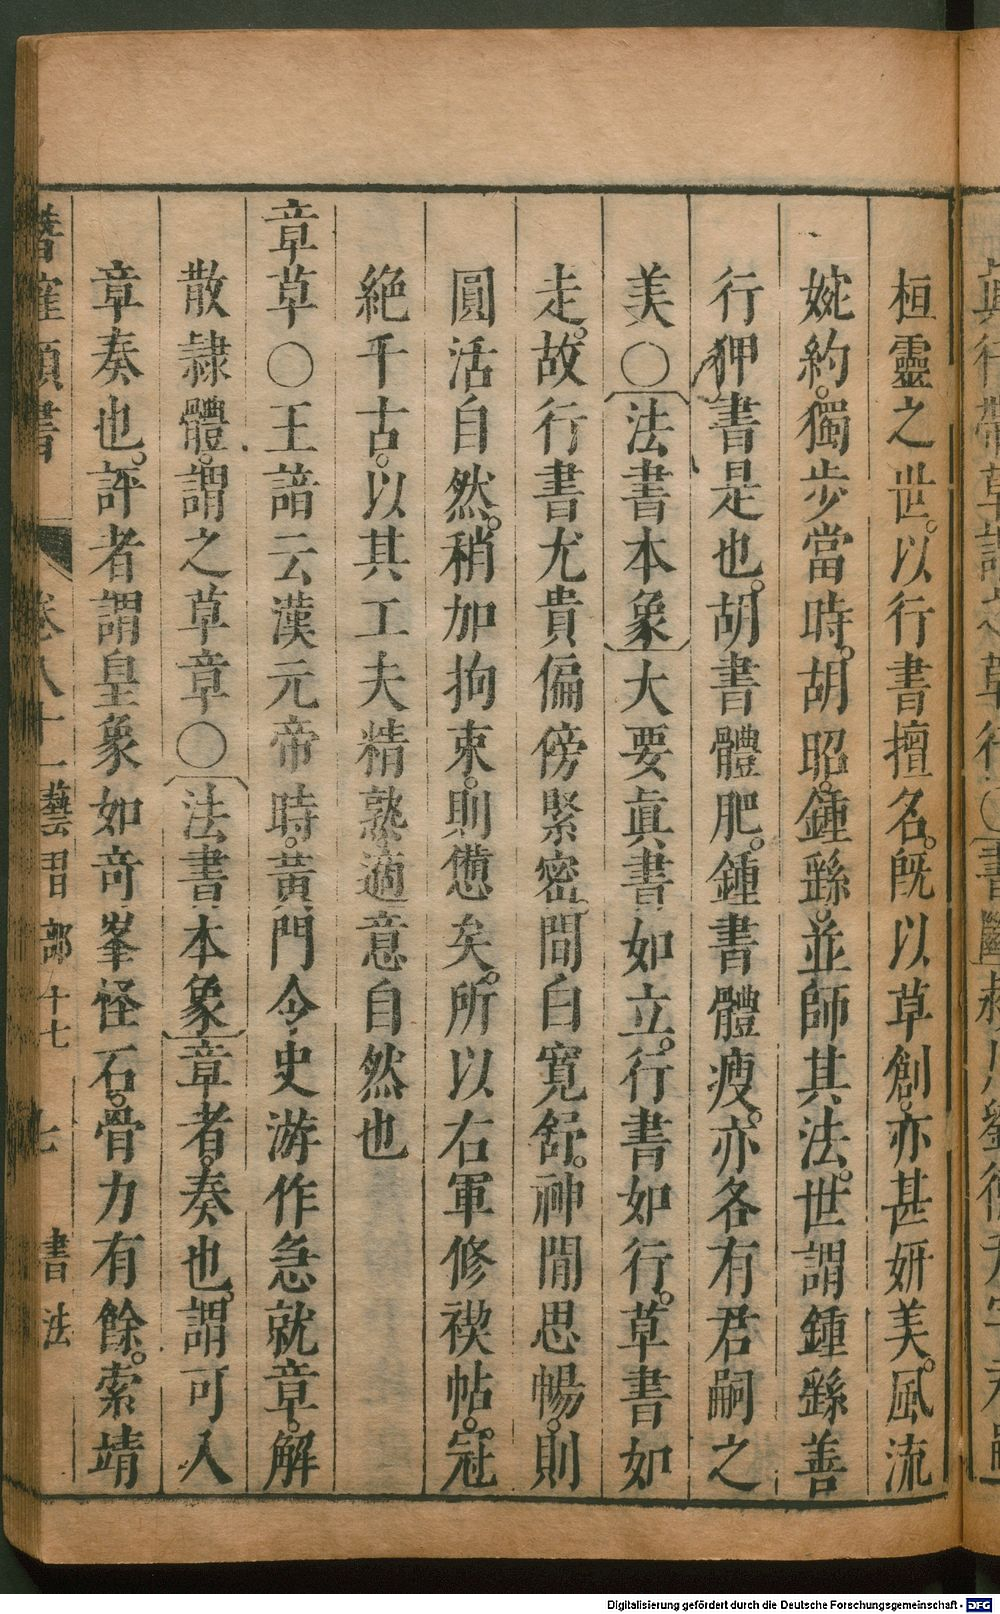 桓靈之世。以行書擅名。旣以草創。亦甚姸美。風流
婉約。獨步當時。胡昭。鍾繇。並師其法。世謂鍾繇善
行狎書是也。胡書體肥。鍾書體瘦。亦各有君嗣之
美○〔法書本象〕大要眞書如立。行書如行。草書如
走。故行書尤貴偏傍緊密。間白寬舒。神閒思暢。則
圓活自然。稍加拘束。則憊矣。所以右軍修禊帖。冠
絶千古。以其工夫精熟。適意自然也
章草○王諳云漢元帝時。黃門令史游作急就章。解
散隷體。謂之草章○〔法書本象〕章者。奏也。謂可入
章奏也。評者謂皇象如奇峯怪石。骨力有餘。索靖
潛確類書
卷八十一 藝習部十七 七 書法
Digitalisierung gefördert durch die Deutsche Forschungsgemeinschaft - DFG